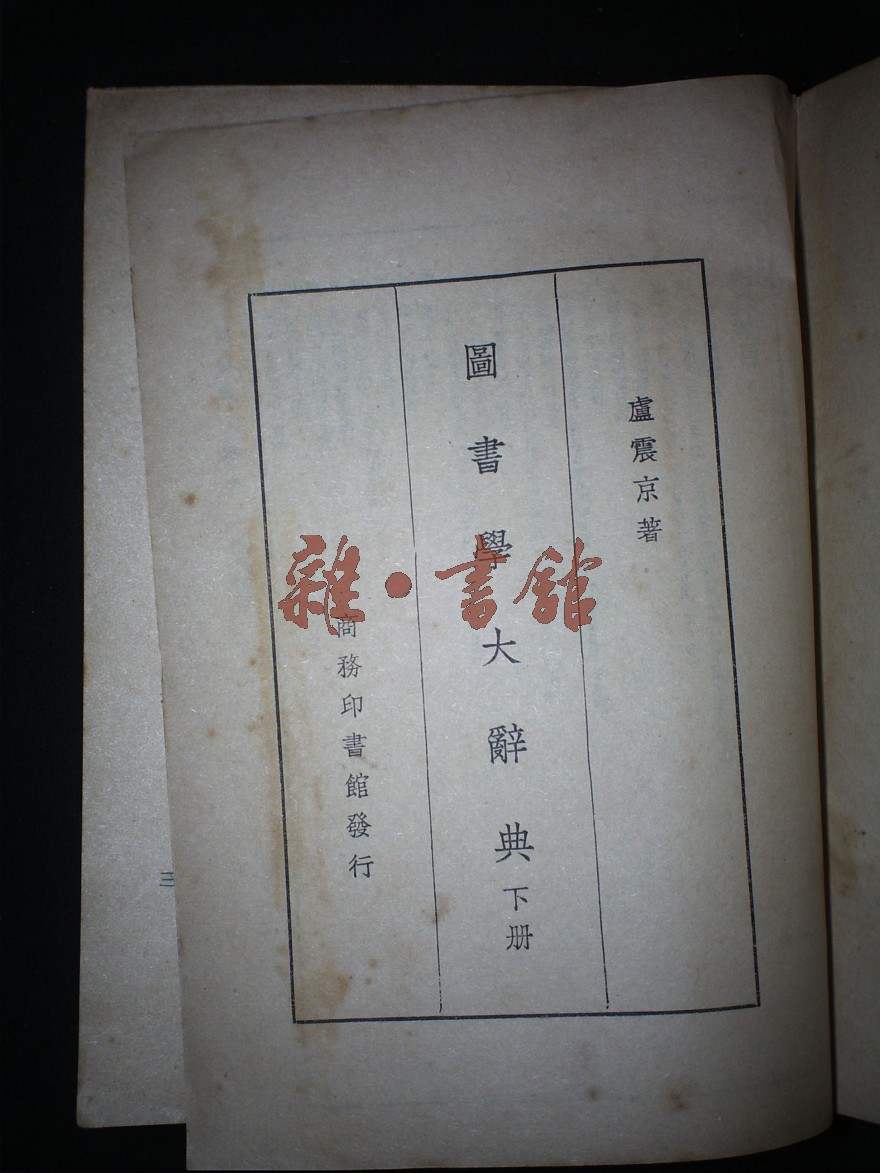 盧震京著
圖書學大辭典下册
商務印書館發行
雜·書館
三